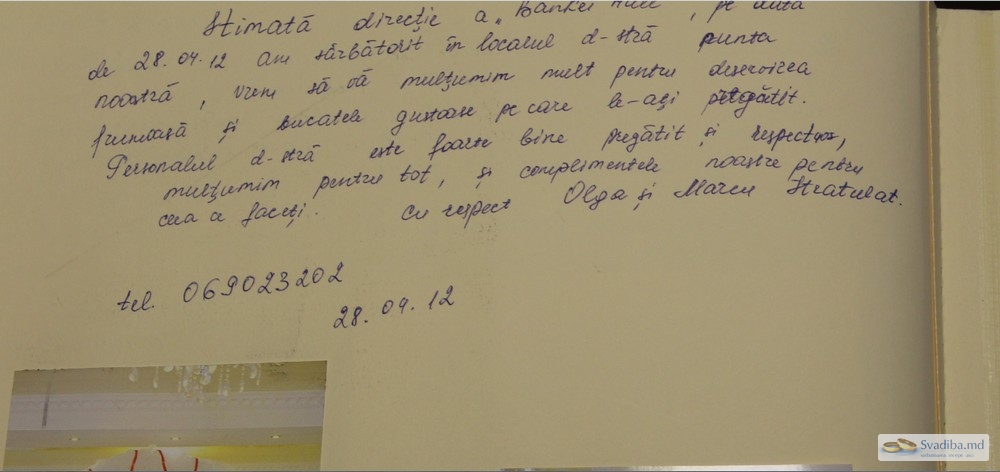 Stimată direcție a „Banket Hall", pe data
de 28.04.12 am sărbătorit în localul d-stră nunta
noastră, vrem să vă mulțumim mult pentru deservirea
frumoasă și bucatele gustoase pe care le-ați pregătit.
Personalul d-stră este foarte bine pregătit și respectuos,
mulțumim pentru tot, și complimentele noastre pentru
ceea ce faceți. Cu respect Olga și Marcu Stratulat.
tel. 069023202
28.04.12
Svadiba.md